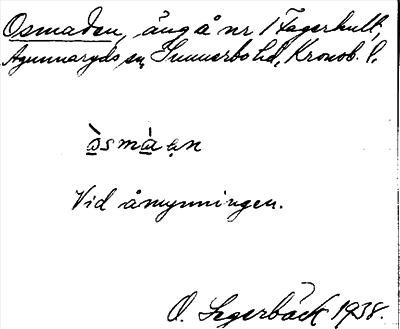 Osmaden, äng å nr 1 Fagerhult,
Agunnaryds sn, Sunnerbo hd, Kronob. l.
ò̲smá̲ ạn
Vid åmynningen.
O. Segerbäck 1938.